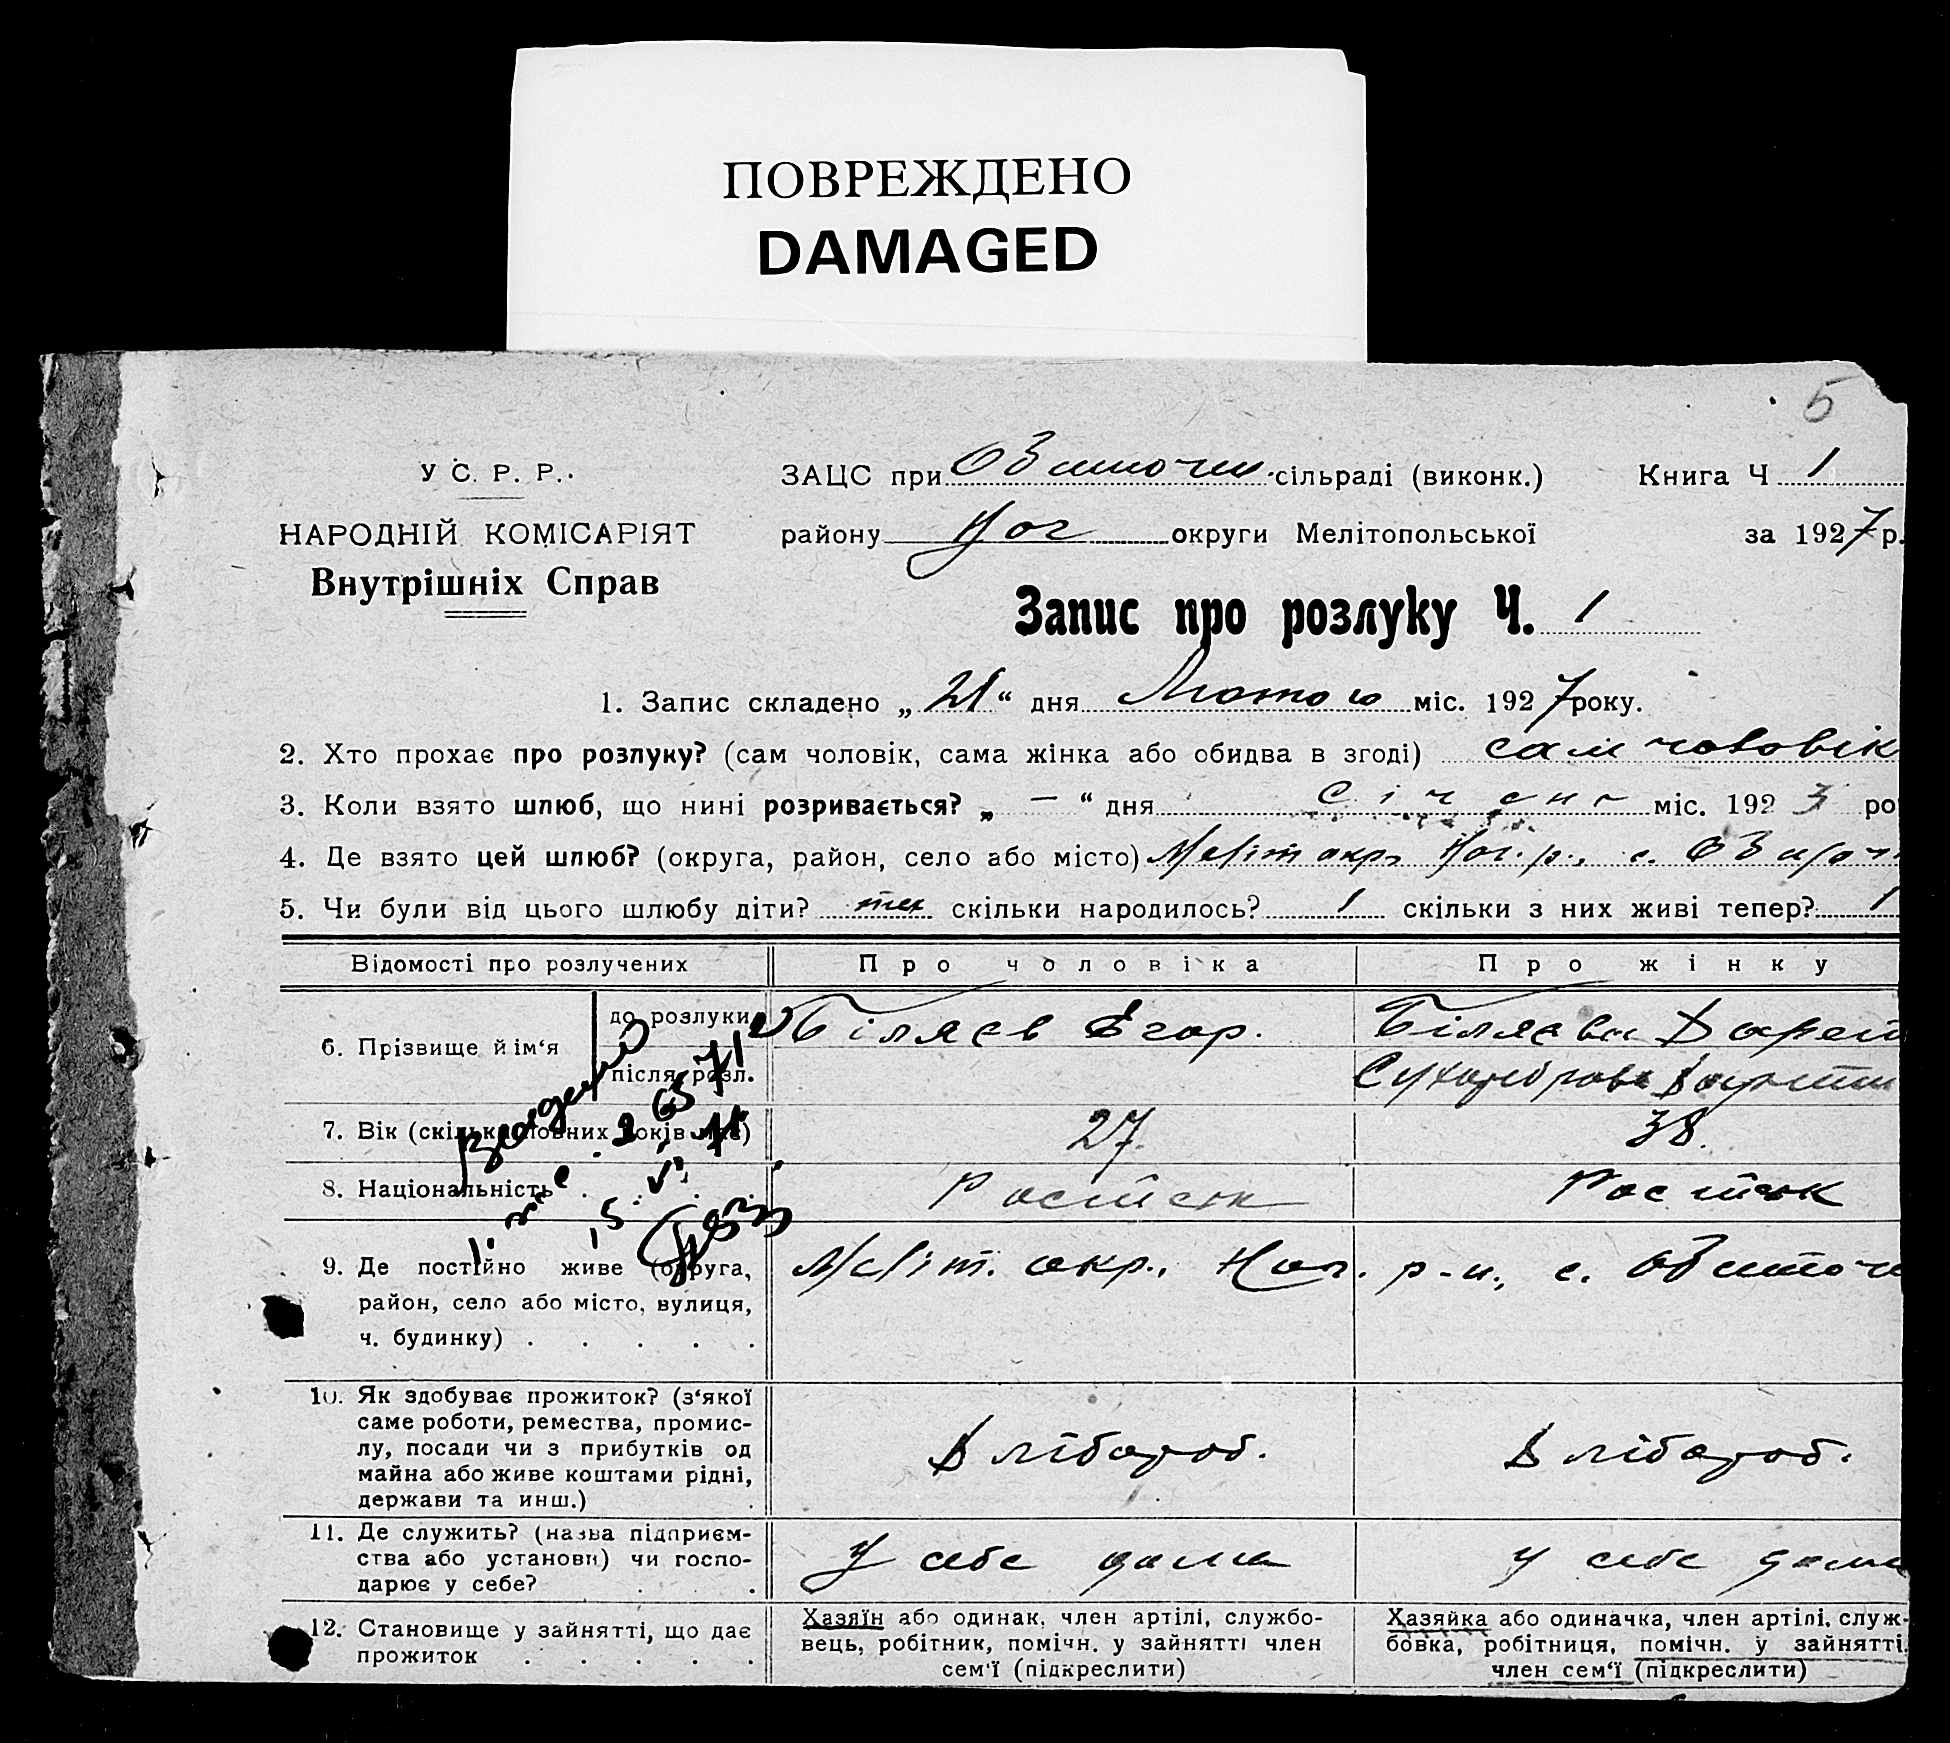 ПОВРЕЖДЕНО
DAMAGED
5
У С. Р. Р.
ЗАЦС при сільраді (виконк.) Книга Ч 1
НАРОДНІЙ КОМІСАРІЯТ
району Ног округи Мелітопольської за 1927 р.
Внутрішніх Справ
Запис про розлуку Ч. 1
1. Запис складено „21“ дня Лютого міс. 1927 року.
2. Хто прохає про розлуку? (сам чоловік, сама жінка або обидва в згоді) сам чоловік
3. Коли взято шлюб, що нині розривається? „ — “ дня Січень міс. 1923 ро
4. Де взято цей шлюб? (округа, район, село або місто) Меліт окр. Ног. р., с.
5. Чи були від цього шлюбу діти? так скільки народилось? 1 скільки з них живі тепер? 1
Відомості про розлучених Про чоловіка Про жінку
6. Прізвище й ім‘я
до розлуки Біляєв Егор. Біляєва
після розл.
7. Вік (скільки повних років має) 27. 38.
8. Національність
9. Де постійно живе (округа, Меліт. окр., Ног. р-н., с.
район, село або місто, вулиця,
ч. будинку)
10. Як здобуває прожиток? (з‘якої
саме роботи, ремества, промис-
лу, посади чи з прибутків од
майна або живе коштами рідні,
держави та инш.)
11. Де служить? (назва підприєм-
ства або установи) чи госпо- у себе дома у себе дома
дарює у себе?
12. Становище у зайнятті, що дає
прожиток
Хазяїн або одинак, член артілі, службо-
вець, робітник, помічн. у зайнятті член
сем‘ї (підкреслити)
Хазяйка або одиначка, член артілі, служ-
бовка, робітниця, помічн. у зайнятті,
член сем‘ї (підкреслити)